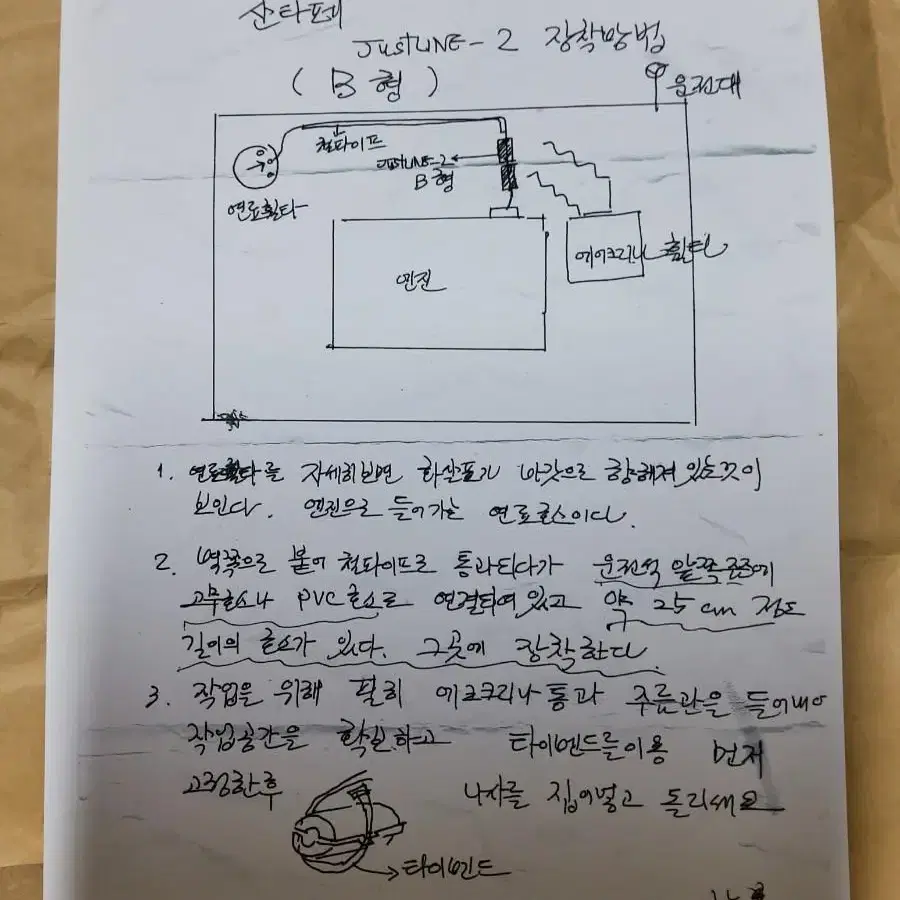 산타페
JustLINE-2 장착방법
(B형)
운전대
철파이프
JustLINE-2
B형
연료휠타
에어크리나 휠타
엔진
1. 연료휠타를 자세히보면 화살표가 바깥으로 향해져 있는것이
보인다. 엔진으로 들어가는 연료호스이다.
2. 벽쪽으로 붙어 철파이프로 통과되다가 운전석 앞쪽
고무호스나 PVC호스로 연결되어 있고 약 25cm 정도
길이의 호스가 있다. 그곳에 장착한다
3. 작업을 위해 필히 에어크리나통과 주름관을 들어내어
작업공간을 확보하고 타이밴드를이용 먼저
고정한후 나사를 집어넣고 돌리세요
타이밴드